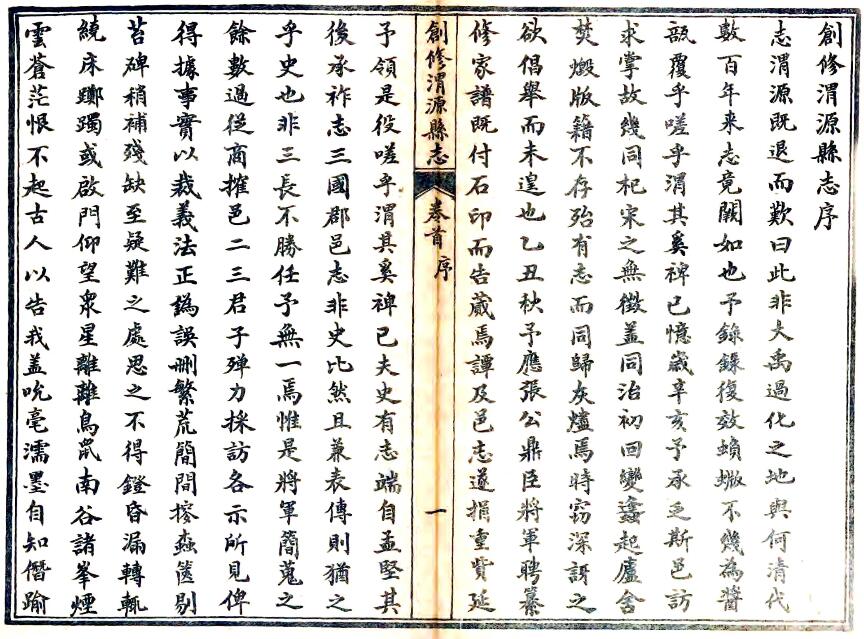 創修渭源縣志序
志渭源既退而歎曰此非大禹過化之地與何清代
數百年来志竟闕如也予錄錄復效蝜蝂不幾為醬
瓿覆乎嗟乎渭其奚裨已憶歲辛亥予承乏斯邑訪
求掌故幾同杞宋之無徵盖同治初回變蠭起廬舍
焚燬版籍不存殆有志而同歸灰燼焉時窃深訝之
欲倡舉而未遑也乙丑秋予應張公鼎臣將軍聘纂
修家譜既付石印而告蕆焉譚及邑志遂捐重貲延
創修渭源縣志
卷首
序
一
予領是役嗟乎渭其奚裨已夫史有志端自孟堅其
後承祚志三國郡邑志非史比然且兼表傳則猶之
乎史也非三長不勝任予無一焉惟是將軍簡蒐之
餘數過從商搉邑二三君子殫力採訪各示所見俾
得據事實以裁義法正鷂誤删繁荒簡間摉蟲篋剔
苔碑稍補殘缺至疑難之處思之不得鐙昏漏轉輒
繞床躑躅或啟門仰望衆星離離鳥鼠南谷諸峯煙
雲蒼茫恨不起古人以告我盖吮毫濡墨自知僭踰